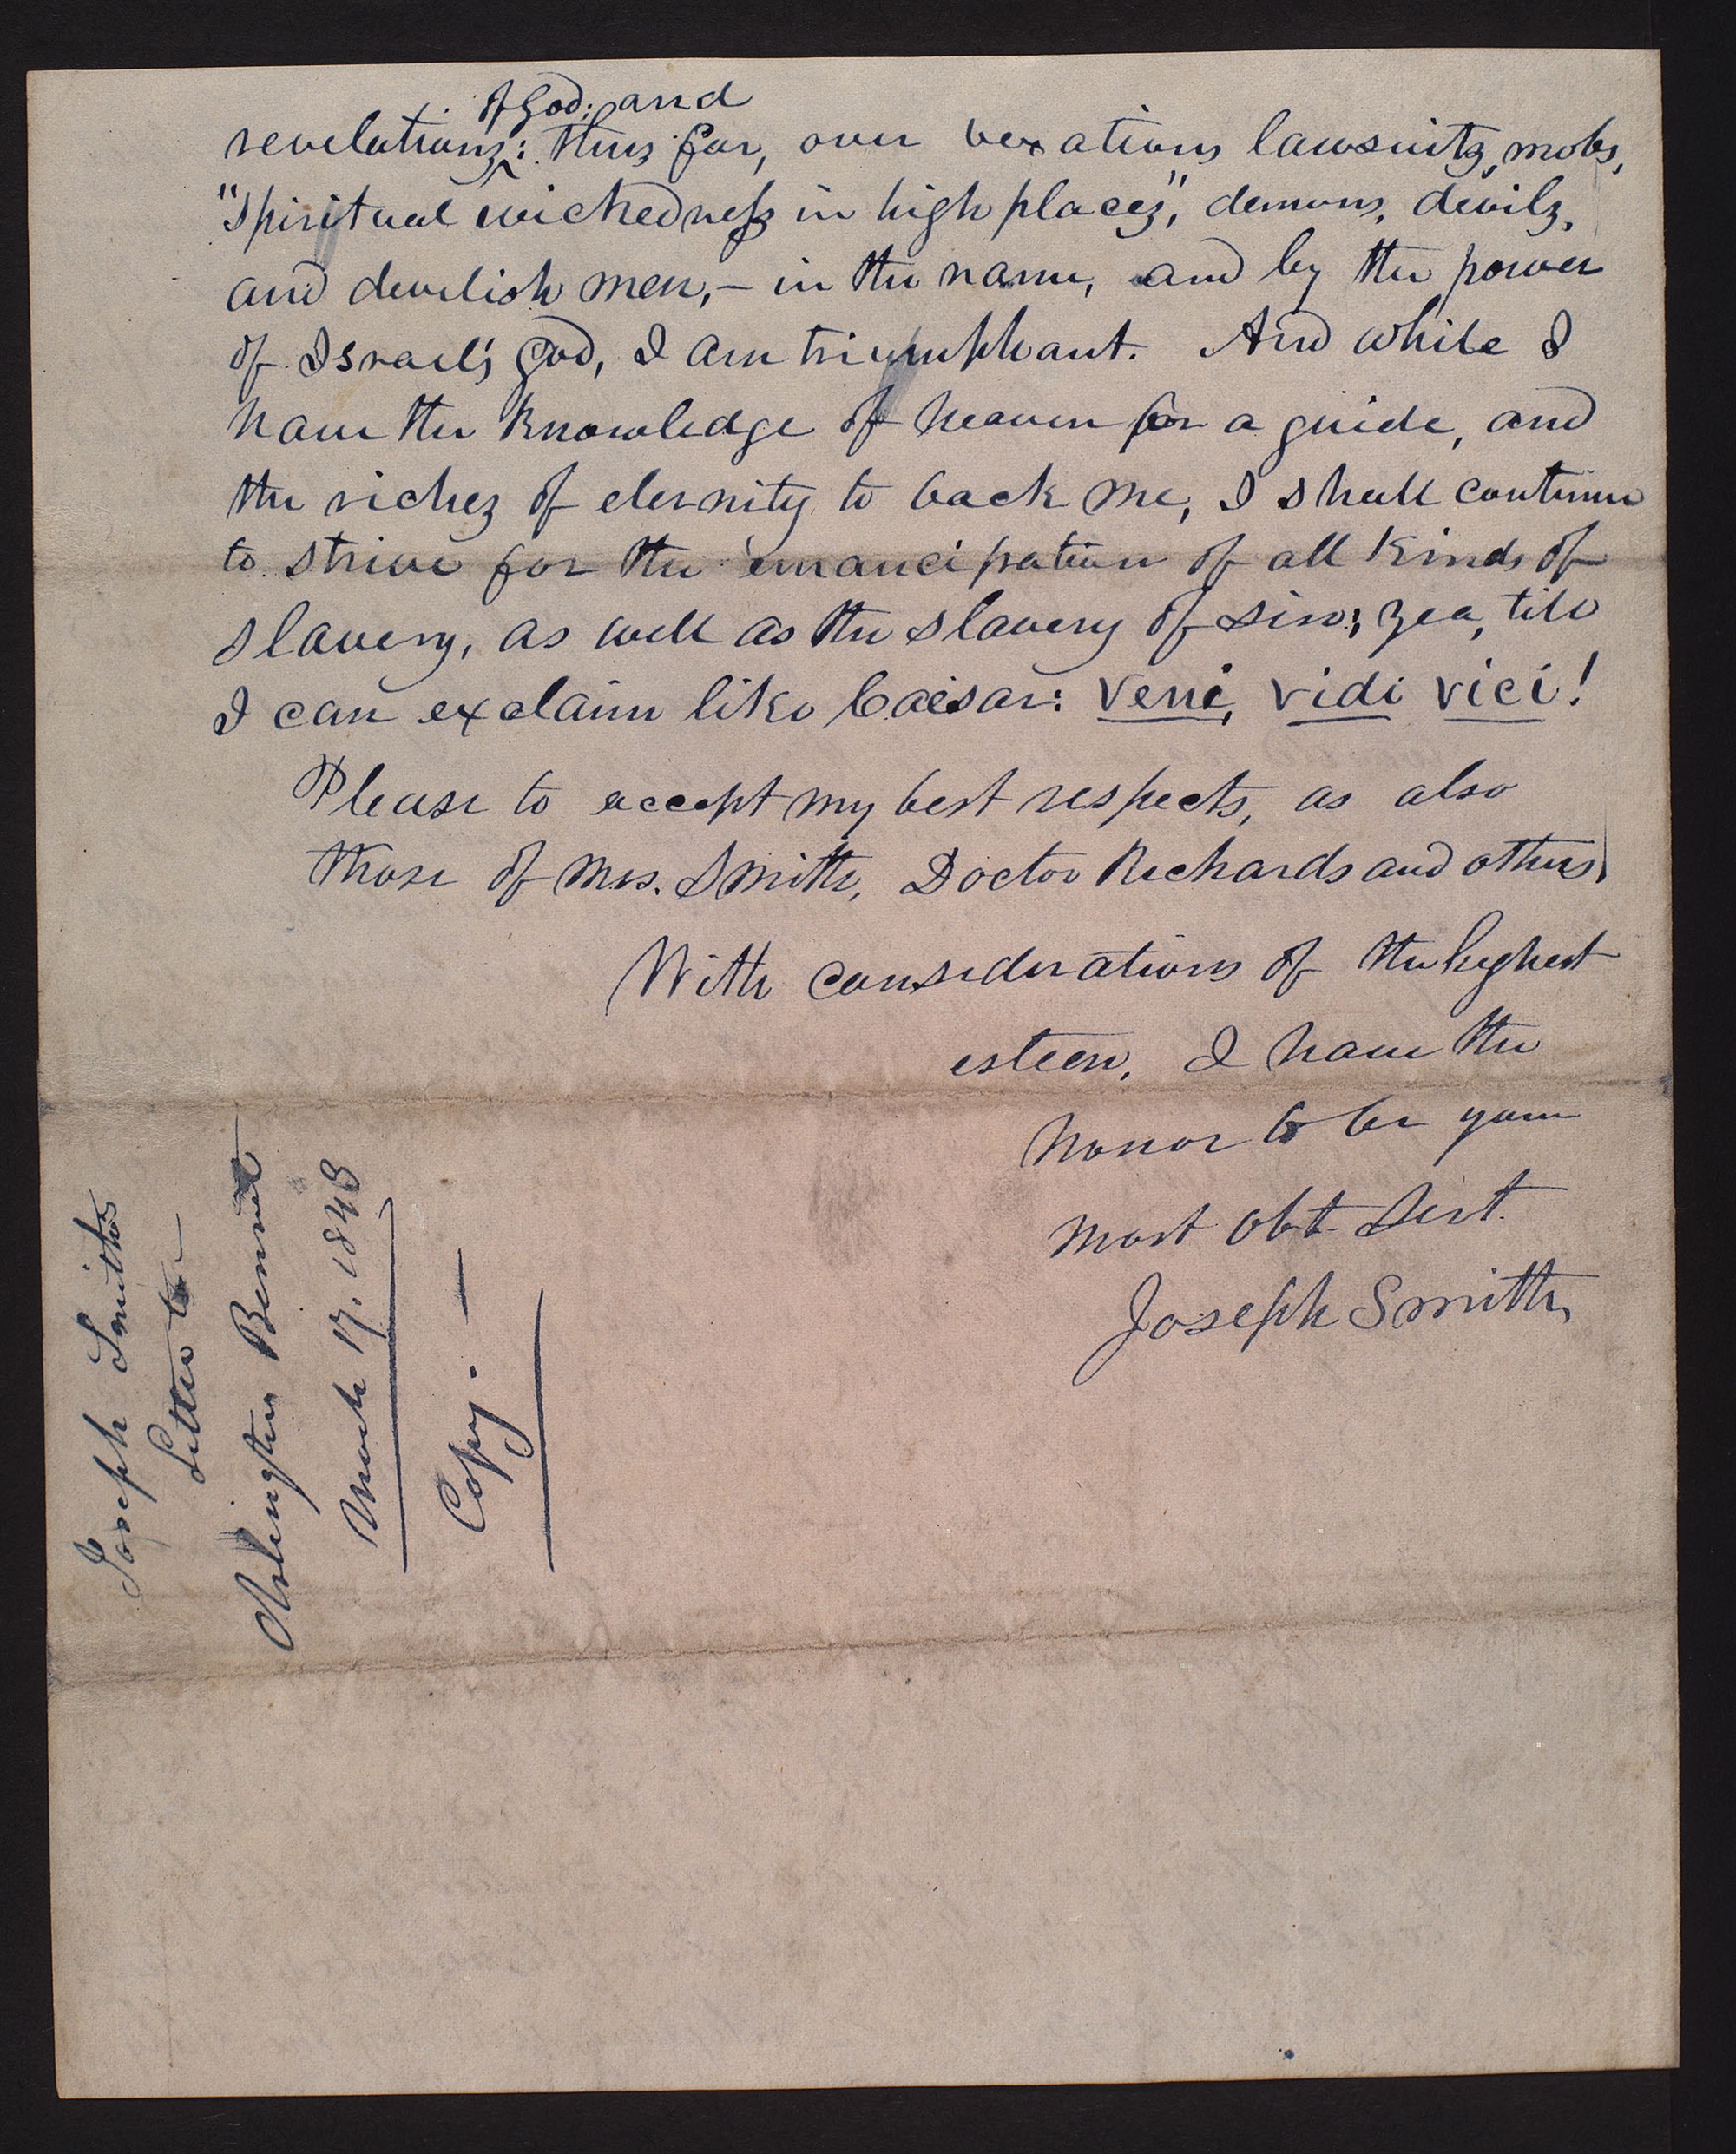 of God: and
revelations: thus far, over vexatious lawsuits, mobs,
"spiritual wickedness in high places", demons, devils,
and develish men,- in the name, and by the power
of Israel's God, I am triumphant. And while I
have the knowledge of heaven for a guide, and
the riches of eternity to back me, I shall continue
to strive for the emancipation of all kinds of
slavery, as well as the slavery of sin; yea, till
I can exclaim like Caesar: veni, vidi vici!
Please to accept my best respects, as also
those of Mrs. Smith, Doctor Richards and others,
With considerations of the highest
esteem, I have the
honor to be your
most obt. Servt.
Joseph Smith,
Joseph Smiths
Letter to-
Arlington Bennet
March 17, 1843
Copy. —